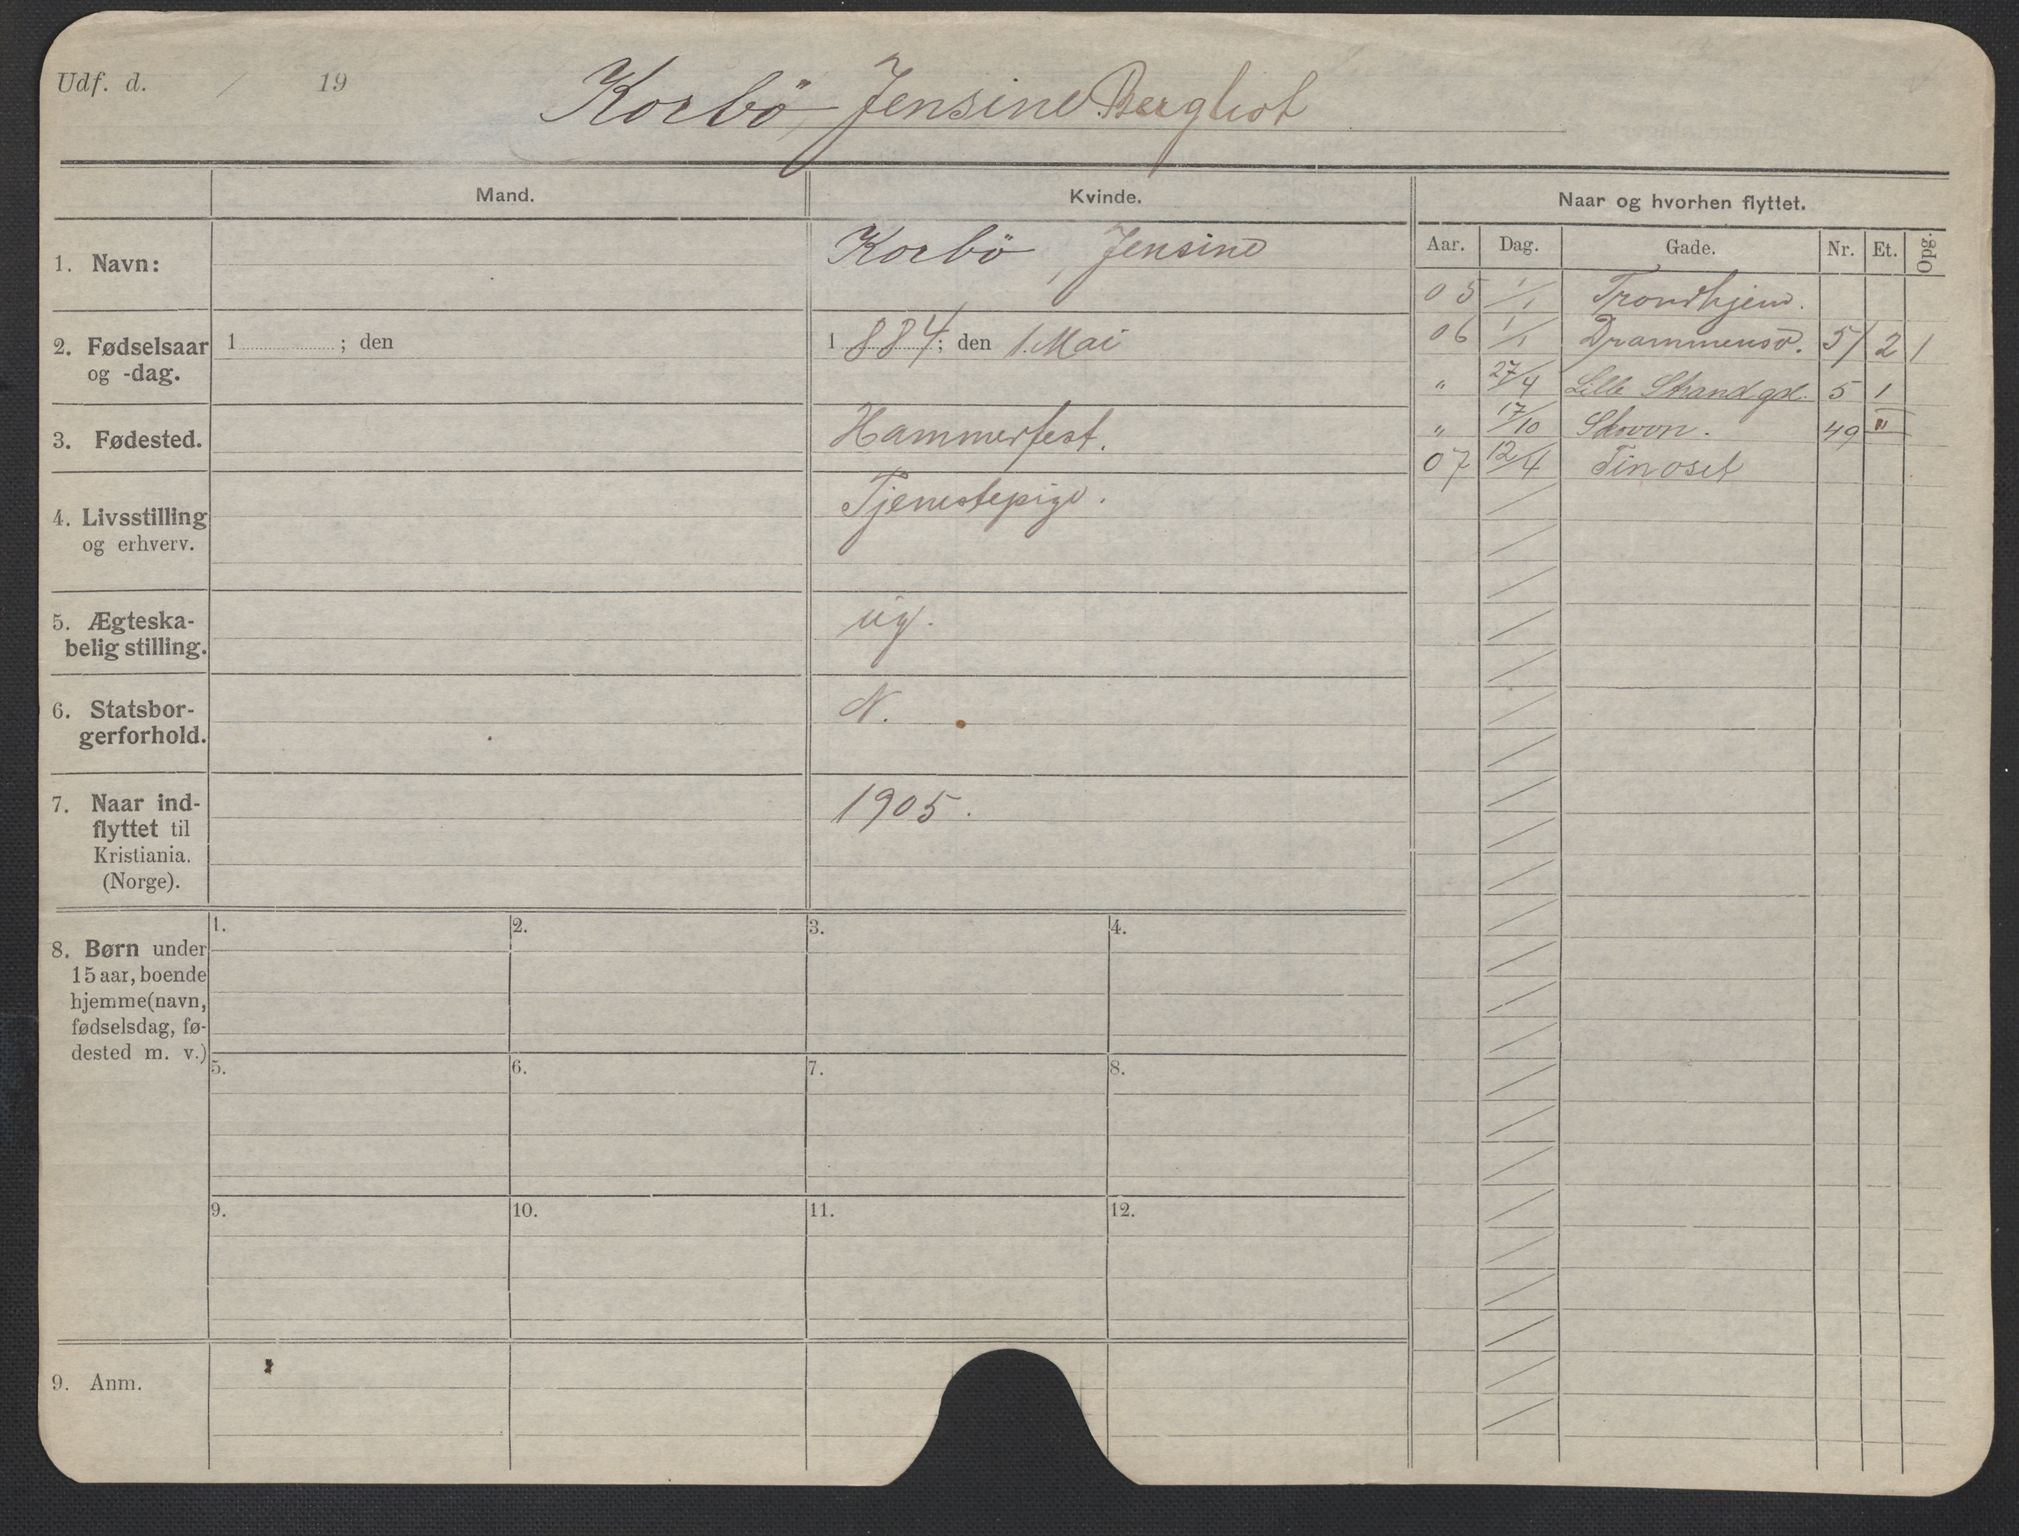 Udf. d. / 19
Korbö, Jensine Bergliot
Mand. Kvinde. Naar og hvorhen flyttet.
Aar. Dag. Gade. Nr. Et. Opg.
1. Navn: Korbö, Jensine
2. Fødselsaar og -dag.
1 ; den
1884; den 1. Mai
3. Fødested. Hammerfest.
4. Livsstilling og erhverv.
Tjenestepige.
5. Ægteska-
belig stilling.
ug.
6. Statsbor-
gerforhold.
N.
7. Naar ind-
flyttet til
Kristiania.
(Norge).
1905.
05 1/1 Trondhjem.
06 1/1 Drammensv. 51 2 1
" 27/4 Lille Strandgd. 5 1
" 17/10 Skovvn. 49 II
07 12/4 Tinoset
8. Børn under
15 aar, boende
hjemme (navn,
fødselsdag, fø-
dested m. v.)
1. 2. 3. 4.
5. 6. 7. 8.
9. 10. 11. 12.
9. Anm.